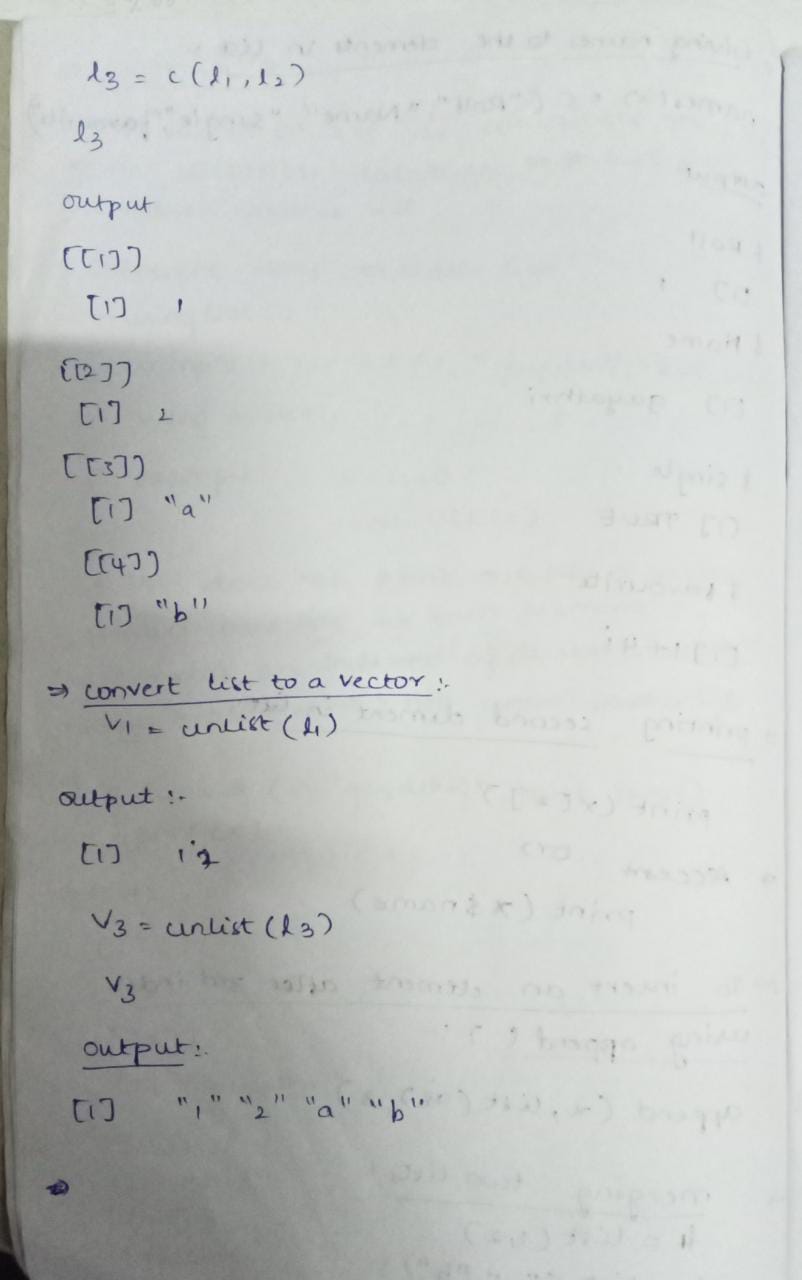 l3 = c(l1, l2)
l3
output
[[1]]
[1] 1
[[2]]
[1] 2
[[3]]
[1] "a"
[[4]]
[1] "b"
⇒ convert list to a vector :-
V1 = unlist (l1)
output :-
[1] 1 2
V3 = unlist (l3)
V3
output :-
[1] "1" "2" "a" "b"